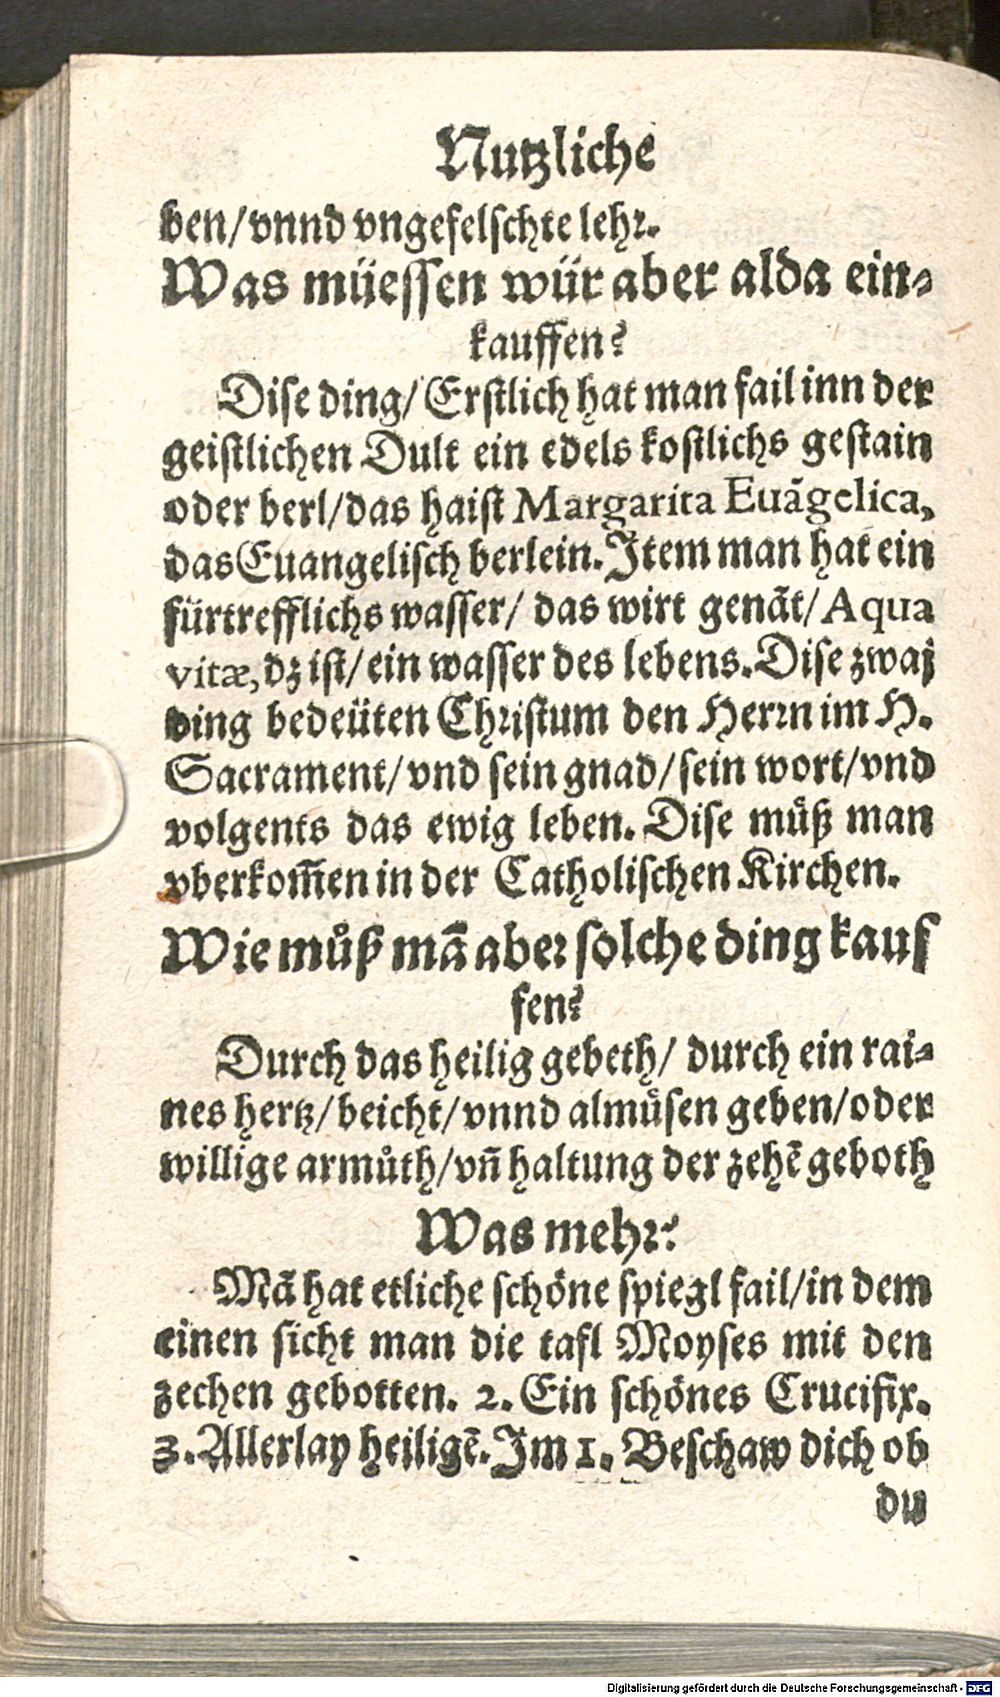 Nutzliche
ben/vnnd vngefelschte lehr.
Was müessen wür aber alda ein-
kauffen?
Dise ding/Erstlich hat man fail inn der
geistlichen Dult ein edels kostlichs gestain
oder berl/das haist Margarita Euãgelica,
das Euangelisch berlein. Item man hat ein
fürtrefflichs wasser/ das wirt genãt/Aqua
vitæ, dz ist/ein wasser des lebens. Dise zwaj
ding bedeüten Christum den Herrn im H.
Sacrament/vnd sein gnad/sein wort/vnd
volgents das ewig leben. Dise můß man
vberkom̃en in der Catholischen Kirchen.
Wie můß mã aber solche ding kauf
fen?
Durch das heilig gebeth/ durch ein rai-
nes hertz/beicht/vnnd almůsen geben/oder
willige armůth/vñ haltung der zehẽ geboth
Was mehr?
Mã hat etliche schöne spiegl fail/in dem
einen sicht man die tafl Moyses mit den
zechen gebotten. 2. Ein schönes Crucifix.
3. Allerlay heiligẽ. Im 1. Beschaw dich ob
du
Digitalisierung gefördert durch die Deutsche Forschungsgemeinschaft - DFG